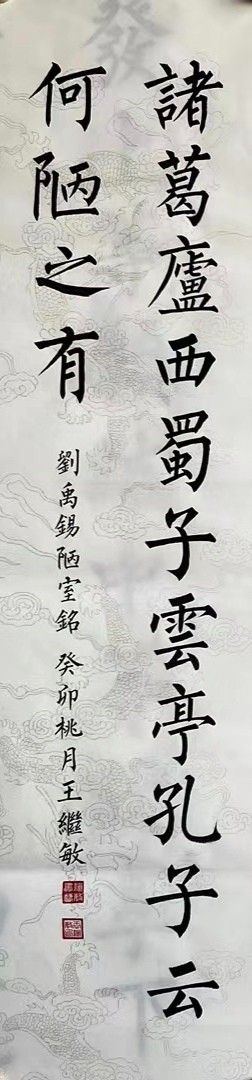 諸葛廬西蜀子雲亭孔子云
何陋之有
劉禹錫陋室銘 癸卯桃月王繼敏